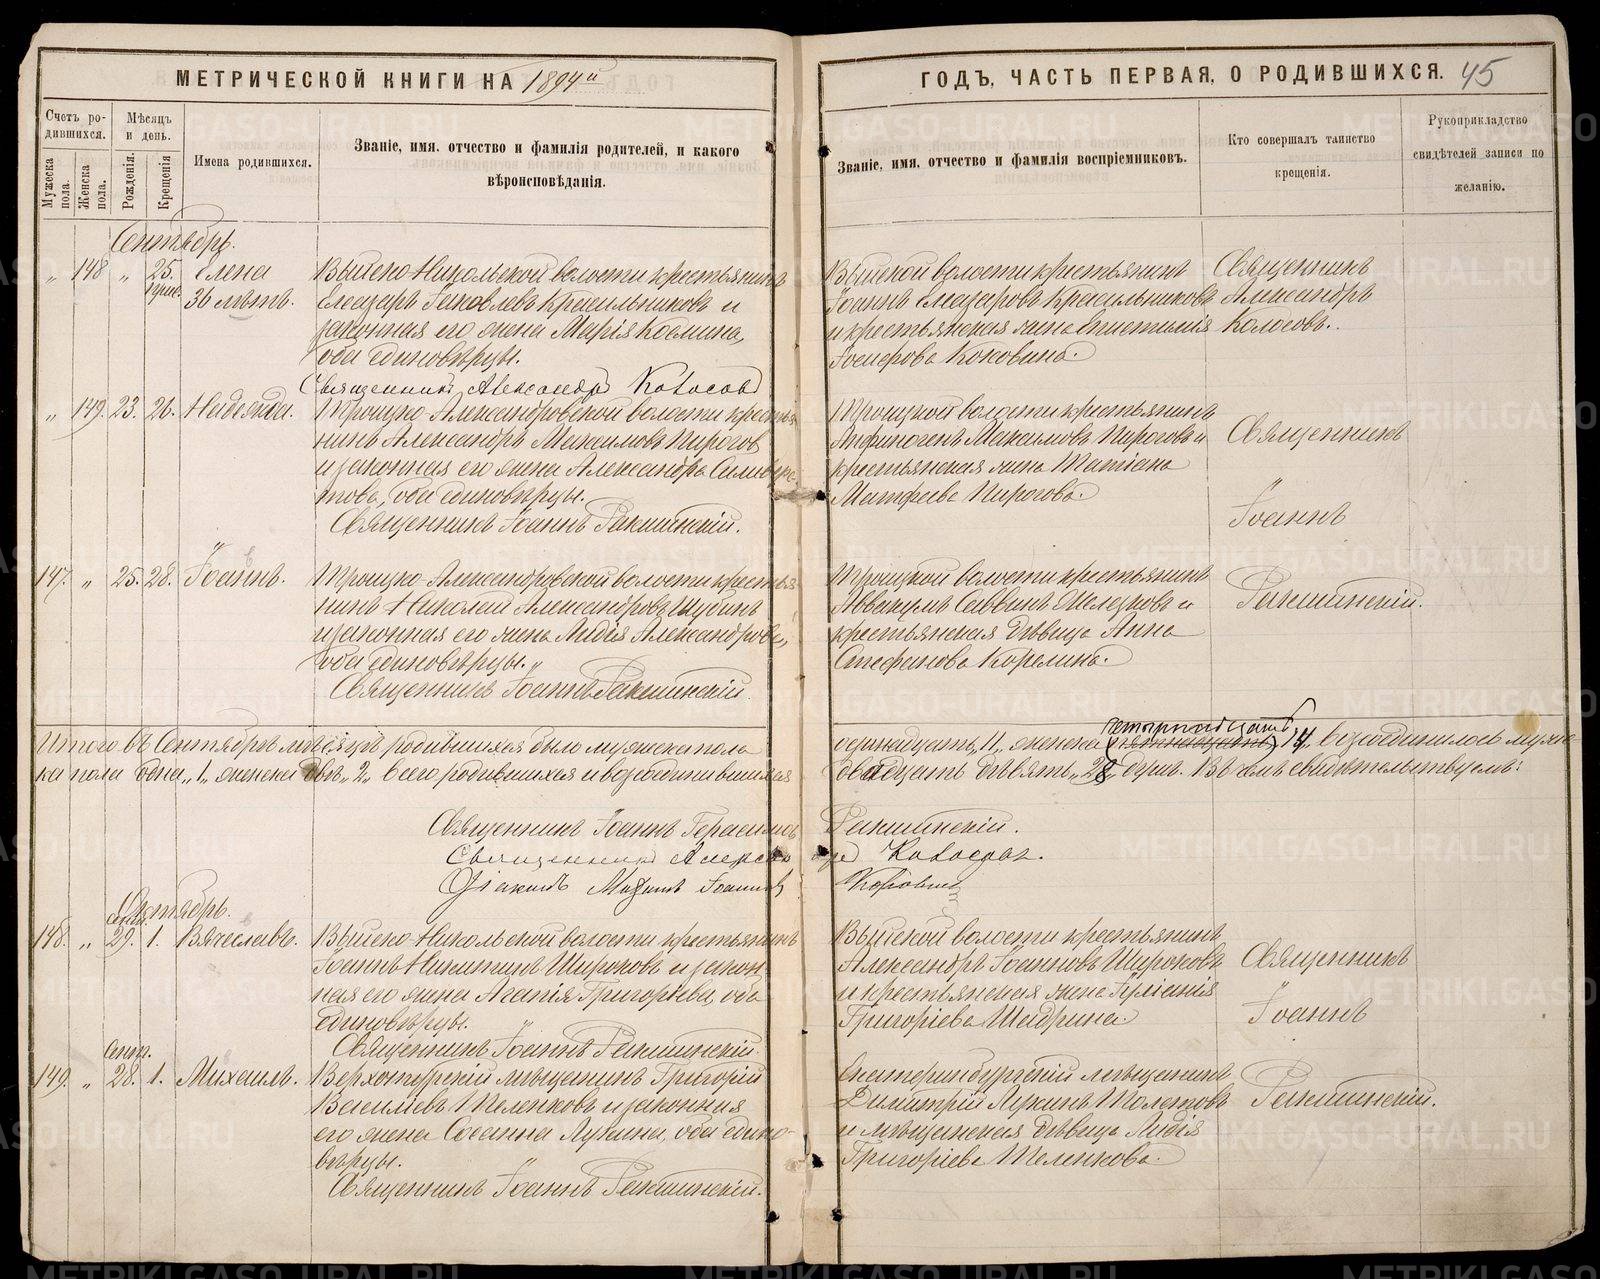 МЕТРИЧЕСКОЙ КНИГИ НА 1894й
ГОДЪ, ЧАСТЬ ПЕРВАЯ, О РОДИВШИХСЯ. 45
Счетъ родившихся.
Мужеска пола.
Женска пола.
Мѣсяцъ и день.
Рожденія.
Крещенія
Имена родившихся.
Званіе, имя, отчество и фамилія родителей, и какого
вѣроисповѣданія.
Званіе, имя, отчество и фамилія воспріемниковъ.
Кто совершалъ таинство
крещенія.
Рукоприкладство
свидѣтелей записи по
желанію.
Сентябрь.
„ 148 „ 25. Елена
36 лѣтъ.
Выйско-Никольской волости крестьянинъ
Елеазаръ Іаковлевъ Красильниковъ и
законная его жена Марія Космина,
оба единовѣрцы.
Священникъ Александръ Колосовъ
Выйской волости крестьянинъ
Іоаннъ Елеазаровъ Красильниковъ
и крестьянская жена Епистимія
Іосифова Коковина.
Священникъ
Александръ
Колосовъ.
„ 149. 23. 26. Надежда.
Троицко-Александровской волости крестья
нинъ Александръ Максимовъ Пироговъ
и законная его жена Александра Силиверс
това, оба единовѣрцы.
Священникъ Іоаннъ Ракшинскій.
Троицкой волости крестьянинъ
Анфиногенъ Максимовъ Пироговъ и
крестьянская жена Татіана
Матфеева Пирогова.
Священникъ
Іоаннъ
147. „ 25. 28. Іоаннъ.
Троицко-Александровской волости крестья
нинъ Николай Александровъ Шубинъ
и законная его жена Лидія Александрова,
оба единовѣрцы.
Священникъ Іоаннъ Ракшинскій.
Троицкой волости крестьянинъ
Аввакумъ Саввинъ Железковъ и
крестьянская дѣвица Анна
Стефанова Корелина.
Ракшинскій.
Итого въ Сентябрѣ мѣсяцѣ родившихся было мужеска пола
одиннадцать „11„ женска четырнадцать „14„ возсоединилось муже-
ка пола одна „1„ женска двѣ „2„ всего родившихся и возсоединившихся
двадцать „28„ душ. Въ чемъ свидѣтельствуемъ:
Священникъ Іоаннъ Герасимовъ Ракшинскій.
Священникъ Александръ Колосовъ.
Діаконъ Іоанновъ
Октябрь.
148. „ сент. 29. 1. Вячеславъ.
Выйско-Никольской волости крестьянинъ
Іоаннъ Никитинъ Широковъ и закон
ная его жена Агапія Григоріева, оба
единовѣрцы.
Священникъ Іоаннъ Ракшинскій.
Выйской волости крестьянинъ
Александръ Іоанновъ Широковъ
и крестьянская жена
Григоріева Шадрина.
Священникъ
Іоаннъ
149. „ Сент. 28. 1. Михаилъ.
Верхотурскій мѣщанинъ Григорій
Васильевъ Теленковъ и законная
его жена Сосанна Лукина, оба едино-
вѣрцы.
Священникъ Іоаннъ Ракшинскій.
Екатеринбургскій мѣщанинъ
Димитрій Лукинъ Толстовъ
и мѣщанская дѣвица Лидія
Григоріева Теленкова.
Ракшинскій.
METRIKI.GASO-URAL.RU